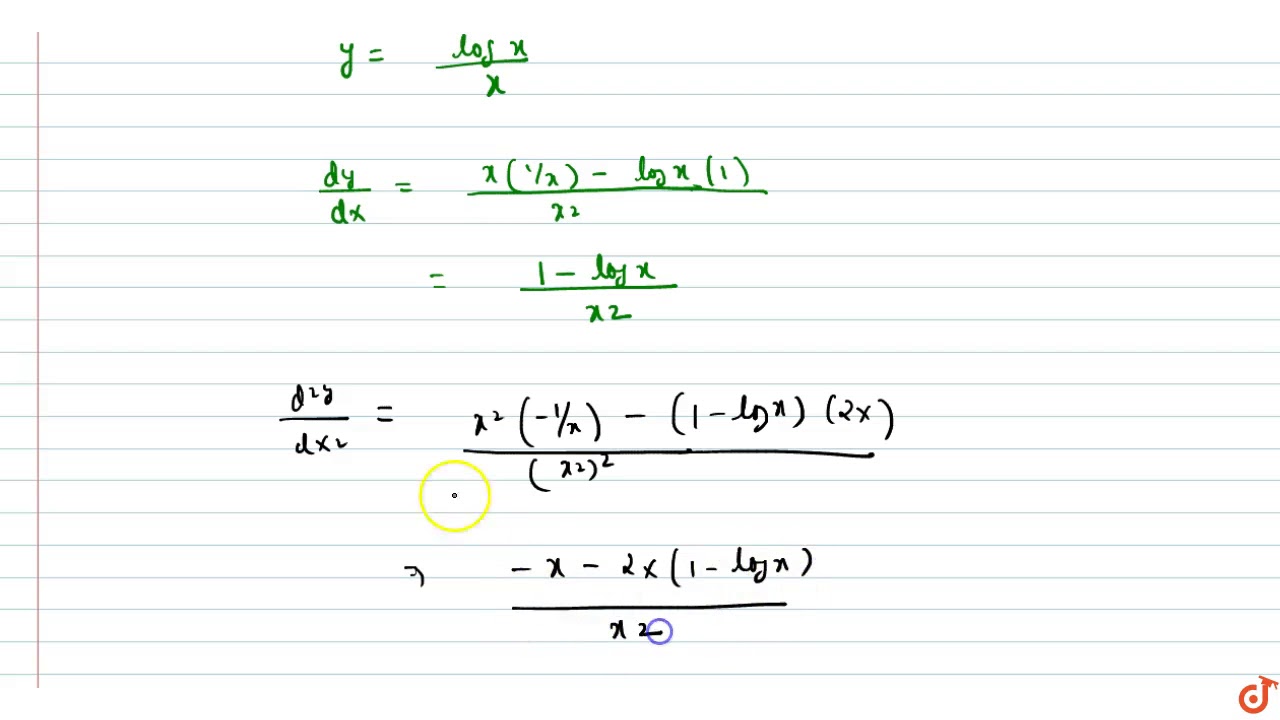 y = log x / x
dy/dx = x(1/x) - log x (1) / x2
= 1 - log x / x2
d2y/dx2 = x2 (-1/x) - (1 - log x) (2x) / (x2)2
⇒ -x - 2x (1 - log x) / x2